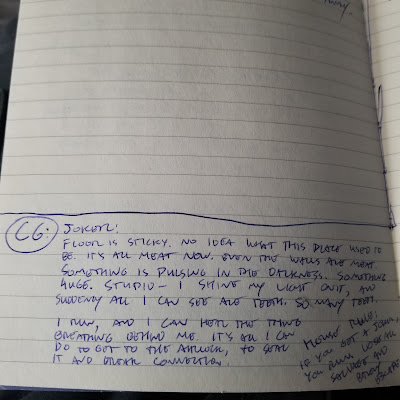 today.
C6:
JOKER:
FLOOR IS STICKY. NO IDEA WHAT THIS PLACE USED TO
BE. IT'S ALL MEAT NOW. EVEN THE WALLS ARE MEAT.
SOMETHING IS PULSING IN THE DARKNESS. SOMETHING
HUGE. STUPID- I SHINE MY LIGHT ON IT, AND
SUDDENLY ALL I CAN SEE ARE TEETH. SO MANY TEETH.
I RUN, AND I CAN HEAR THE THING
BREATHING BEHIND ME. IT'S ALL I CAN
DO TO GET TO THE AIRLOCK, TO SEAL
IT AND BREAK CONNECTION.
HOUSE RULE:
IF YOU GET A JOKER,
YOU RUN. LOSE ALL
SALVAGE AND